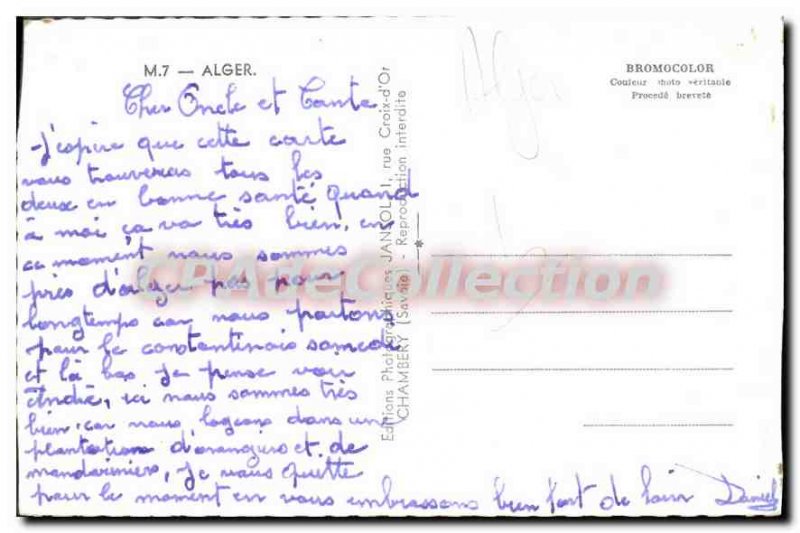 M.7 — ALGER.
Cher Oncle et Tante
J'espère que cette carte
vous trouveras tous les
deux en bonne santé quand
à moi ça va très bien, en
ce moment nous sommes
près d'alger pas pour
longtemps car nous partons
pour le constantinois samedi
et là bas je pense voir
André, ici nous sommes très
bien, car nous logeons dans une
plantation d'orangers et de
mandariniers, Je vous quitte
pour le moment en vous embrassans bien fort de loin Daniel
Editions Photographiques JANSOL, 1, rue Croix-d'Or
CHAMBERY (Savoie) - Reproduction interdite
Alger
BROMOCOLOR
Couleur photo véritable
Procédé breveté
CPAdeCollection